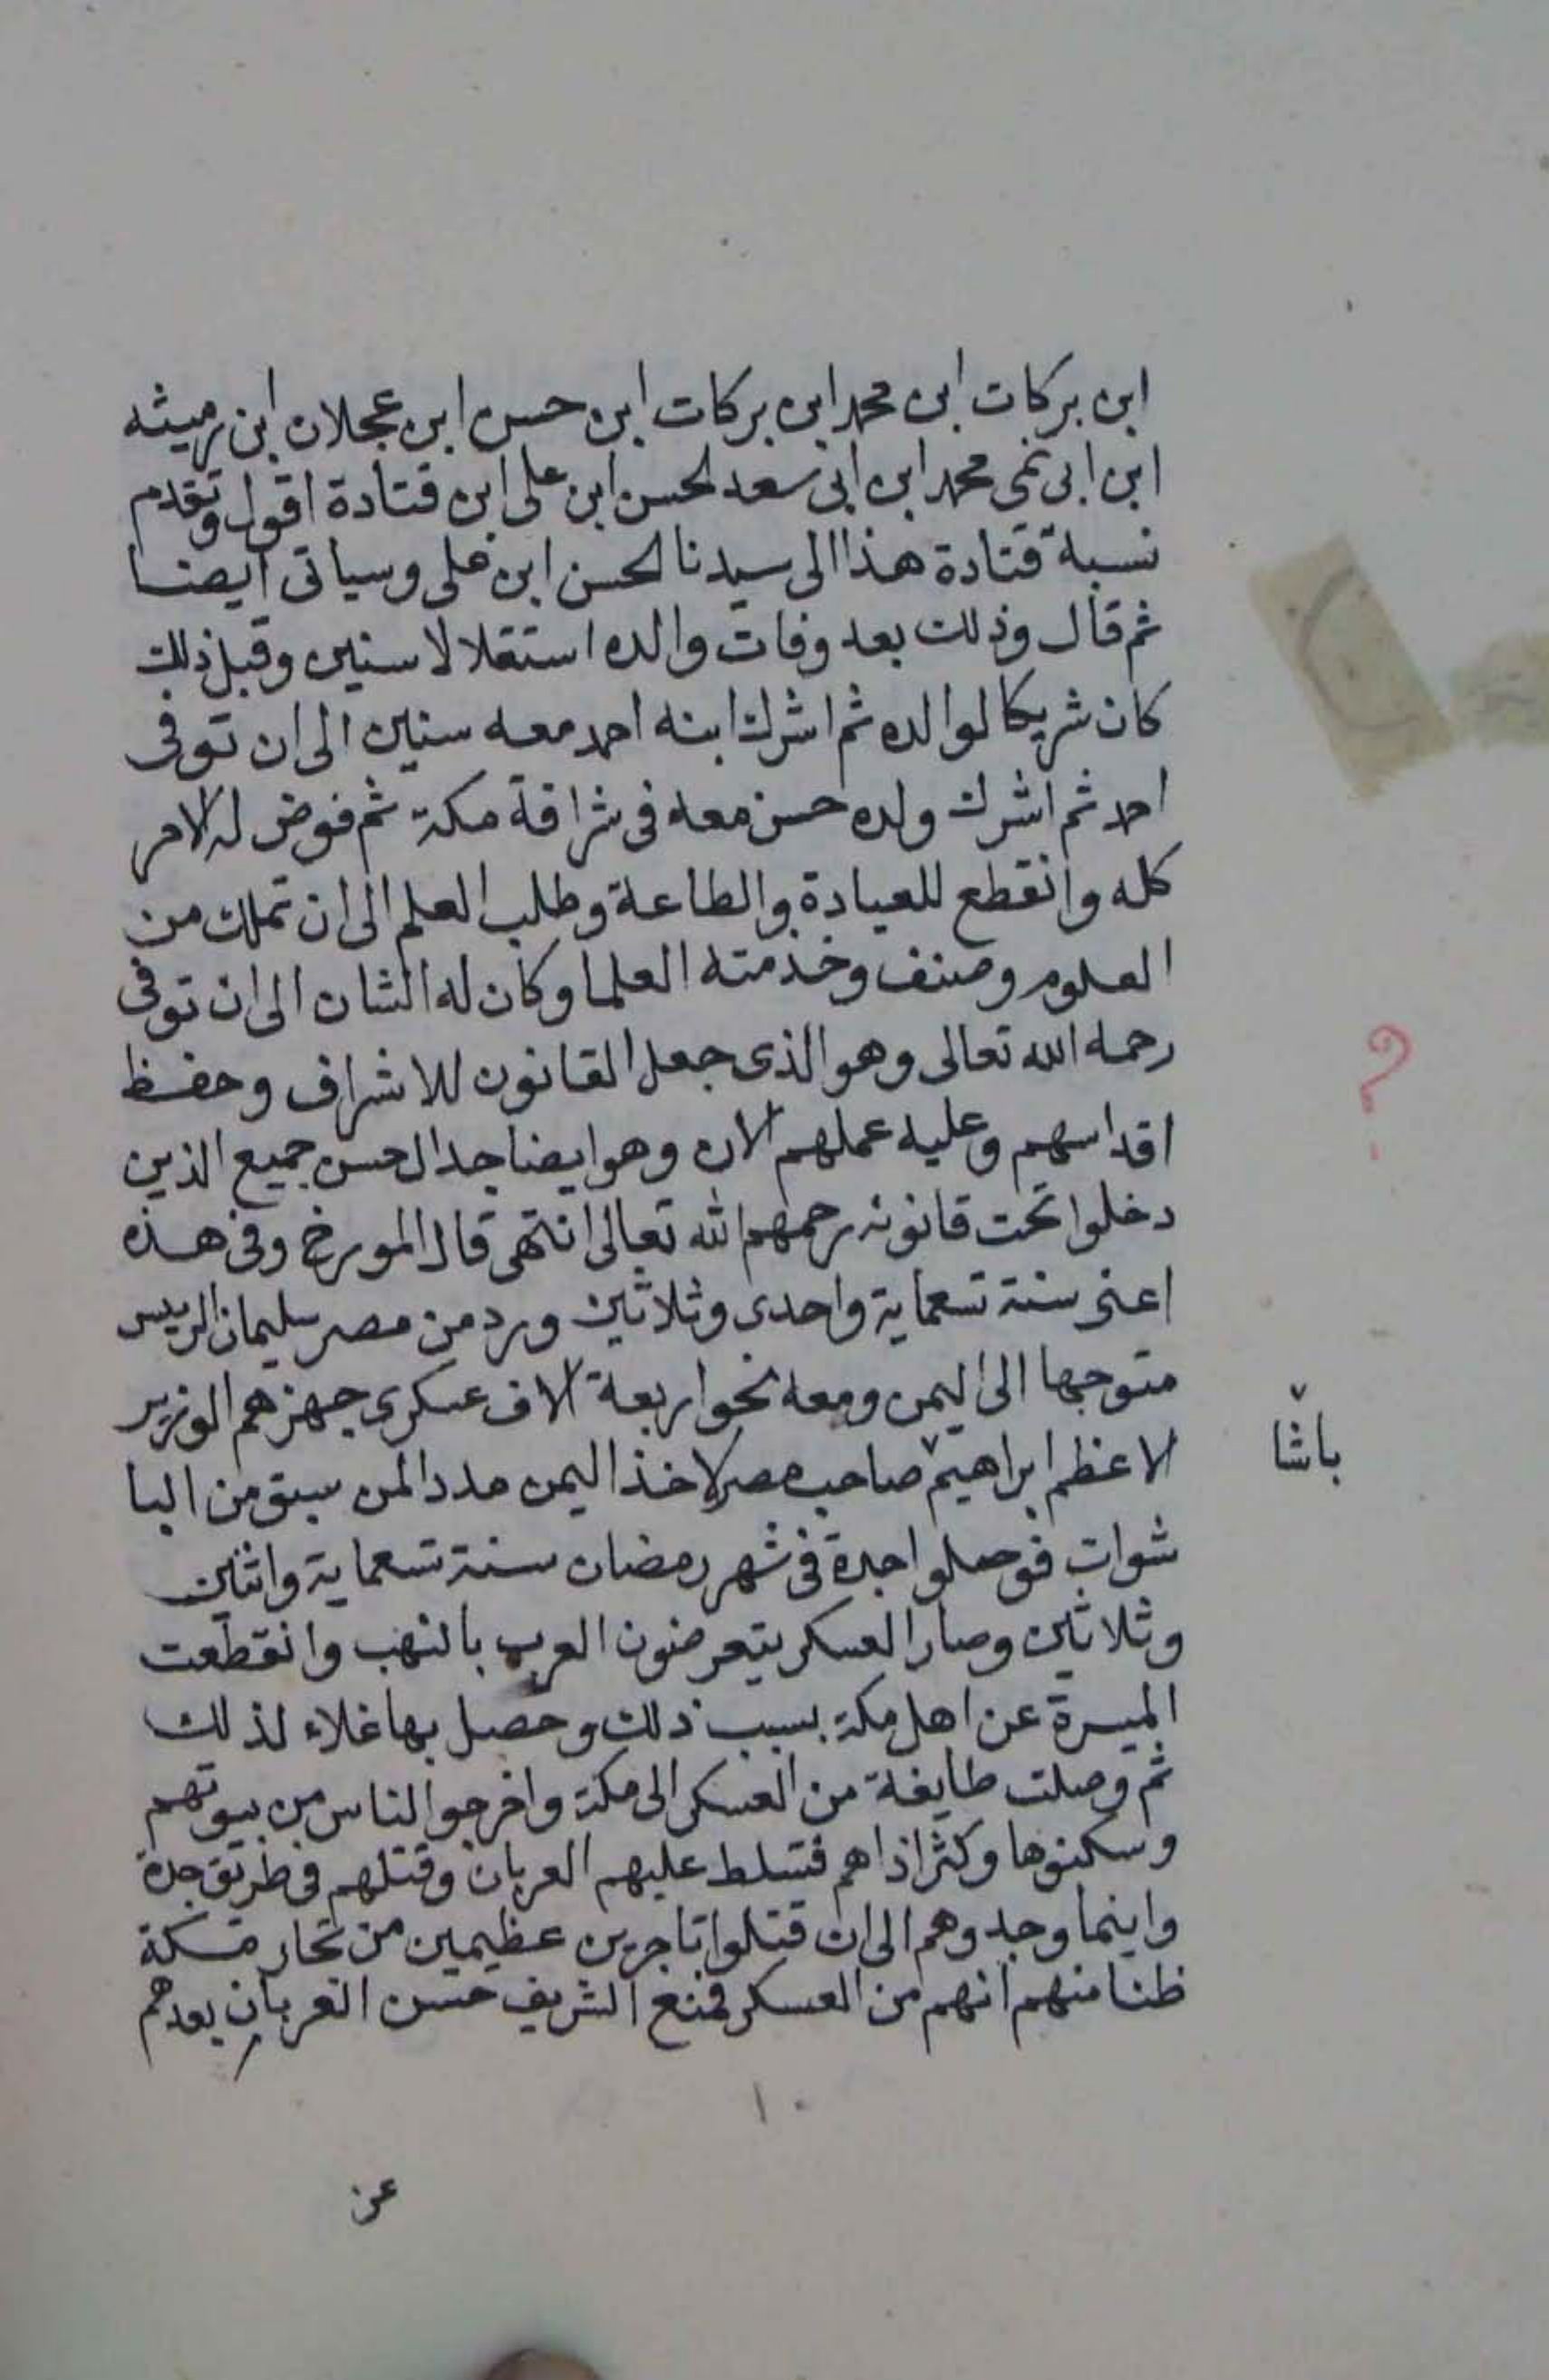 ابن بركات ابن محمد ابن بركات ابن حسن ابن عجلان ابن رميثه
ابن ابى نمى محمد ابن ابى سعد الحسن ابن على ابن قتادة اقول وتقدم
نسبة قتادة هذا الى سيدنا الحسن ابن على وسياتى ايضا
ثم قال وذلك بعد وفات والده استقلالا سنين وقبل ذلك
كان شريكا لوالده ثم اشرك ابنه احمد معه سنين الى ان توفى
احمد ثم اشرك ولده حسن معه فى شرافة مكة ثم فوض له الامر
كله وانقطع للعبادة والطاعة وطلب العلم الى ان تملك من
العلوم وصنف وخدمته العلما وكان له الشان الى ان توفى
رحمه الله تعالى وهو الذى جعل القانون للاشراف وحفظ
اقداسهم وعليه عملهم الان وهو ايضا جد ال حسن جميع الذين
دخلوا تحت قانونه رحمهم الله تعالى انتهى قال المورخ وفى هذه
اعنى سنة تسعماية واحدى وثلاثين ورد من مصر سليمان الريس
متوجها الى اليمن ومعه نحو اربعة الاف عسكرى جهزهم الوزير
الاعظم ابراهيم صاحب مصر لاخذ اليمن مددا لمن سبق من البا
باشا
شوات فوصلوا جدة فى شهر رمضان سنة تسعماية واثنين
وثلاثين وصار العسكر يتعرضون العرب بالنهب وانقطعت
الميرة عن اهل مكة بسبب ذلك وحصل بها غلاء لذلك
ثم وصلت طايفة من العسكر الى مكة واخرجوا الناس من بيوتهم
وسكنوها وكثر اذاهم فتسلط عليهم العربان وقتلهم فى طريق جدة
واينما وجدوهم الى ان قتلوا تاجرين عظيمين من تجار مكة
ظنا منهم انهم من العسكر فمنع الشريف حسن العربان بعدهم
١٠
عن
؟